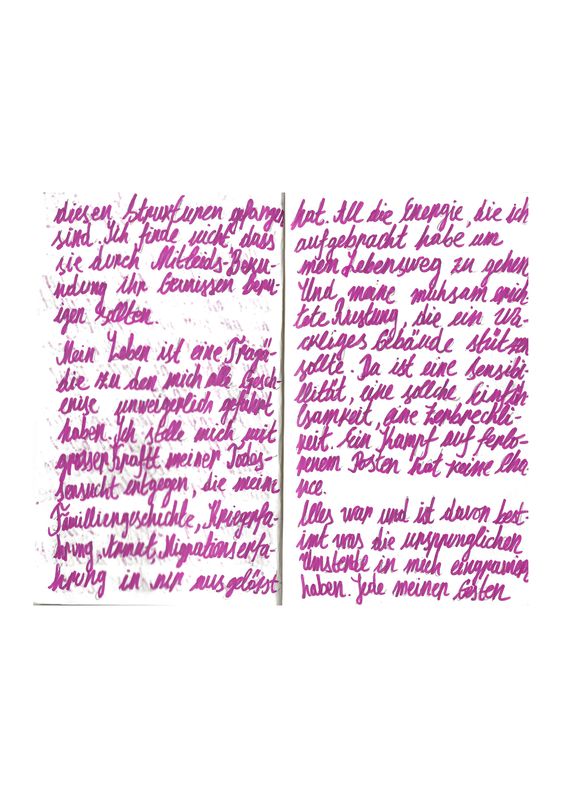 diesen Strukturen gefangen
sind. Ich finde nicht dass
sie durch Mitleids-Beku-
ndung ihr Gewissen beru-
igen sollten.
Mein Leben ist eine Tragö-
die zu den mich alle Gesch-
enise unweigerlich geführt
haben. Ich stelle mich mit
grosser Krafft meiner Todes-
sensucht entgegen, die meine
Familliengeschichte, Kriegerfa-
hrung, Armut, Migrationserfa-
hrung in mir ausgelösst
hat. All die Energie, die ich
aufgebracht habe um
mein Lebensweg zu gehen
Und meine mühsam errich
tete Rüstung, die ein wa-
ckliges Gebäude stützen
sollte. Da ist eine sensibi-
llität, eine sollche Einfüh
lsamkeit, eine Zerbrechli-
keit. Ein Kampf auf ferlo-
renem Posten hat keine Cha
nce.
Alles war und ist davon best-
imt was die ursprunglichen
Umstende in mich eingraviert
haben. Jede meiner Gesten